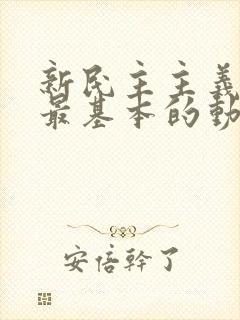 新民主主義
最基本的動
安倍幹了